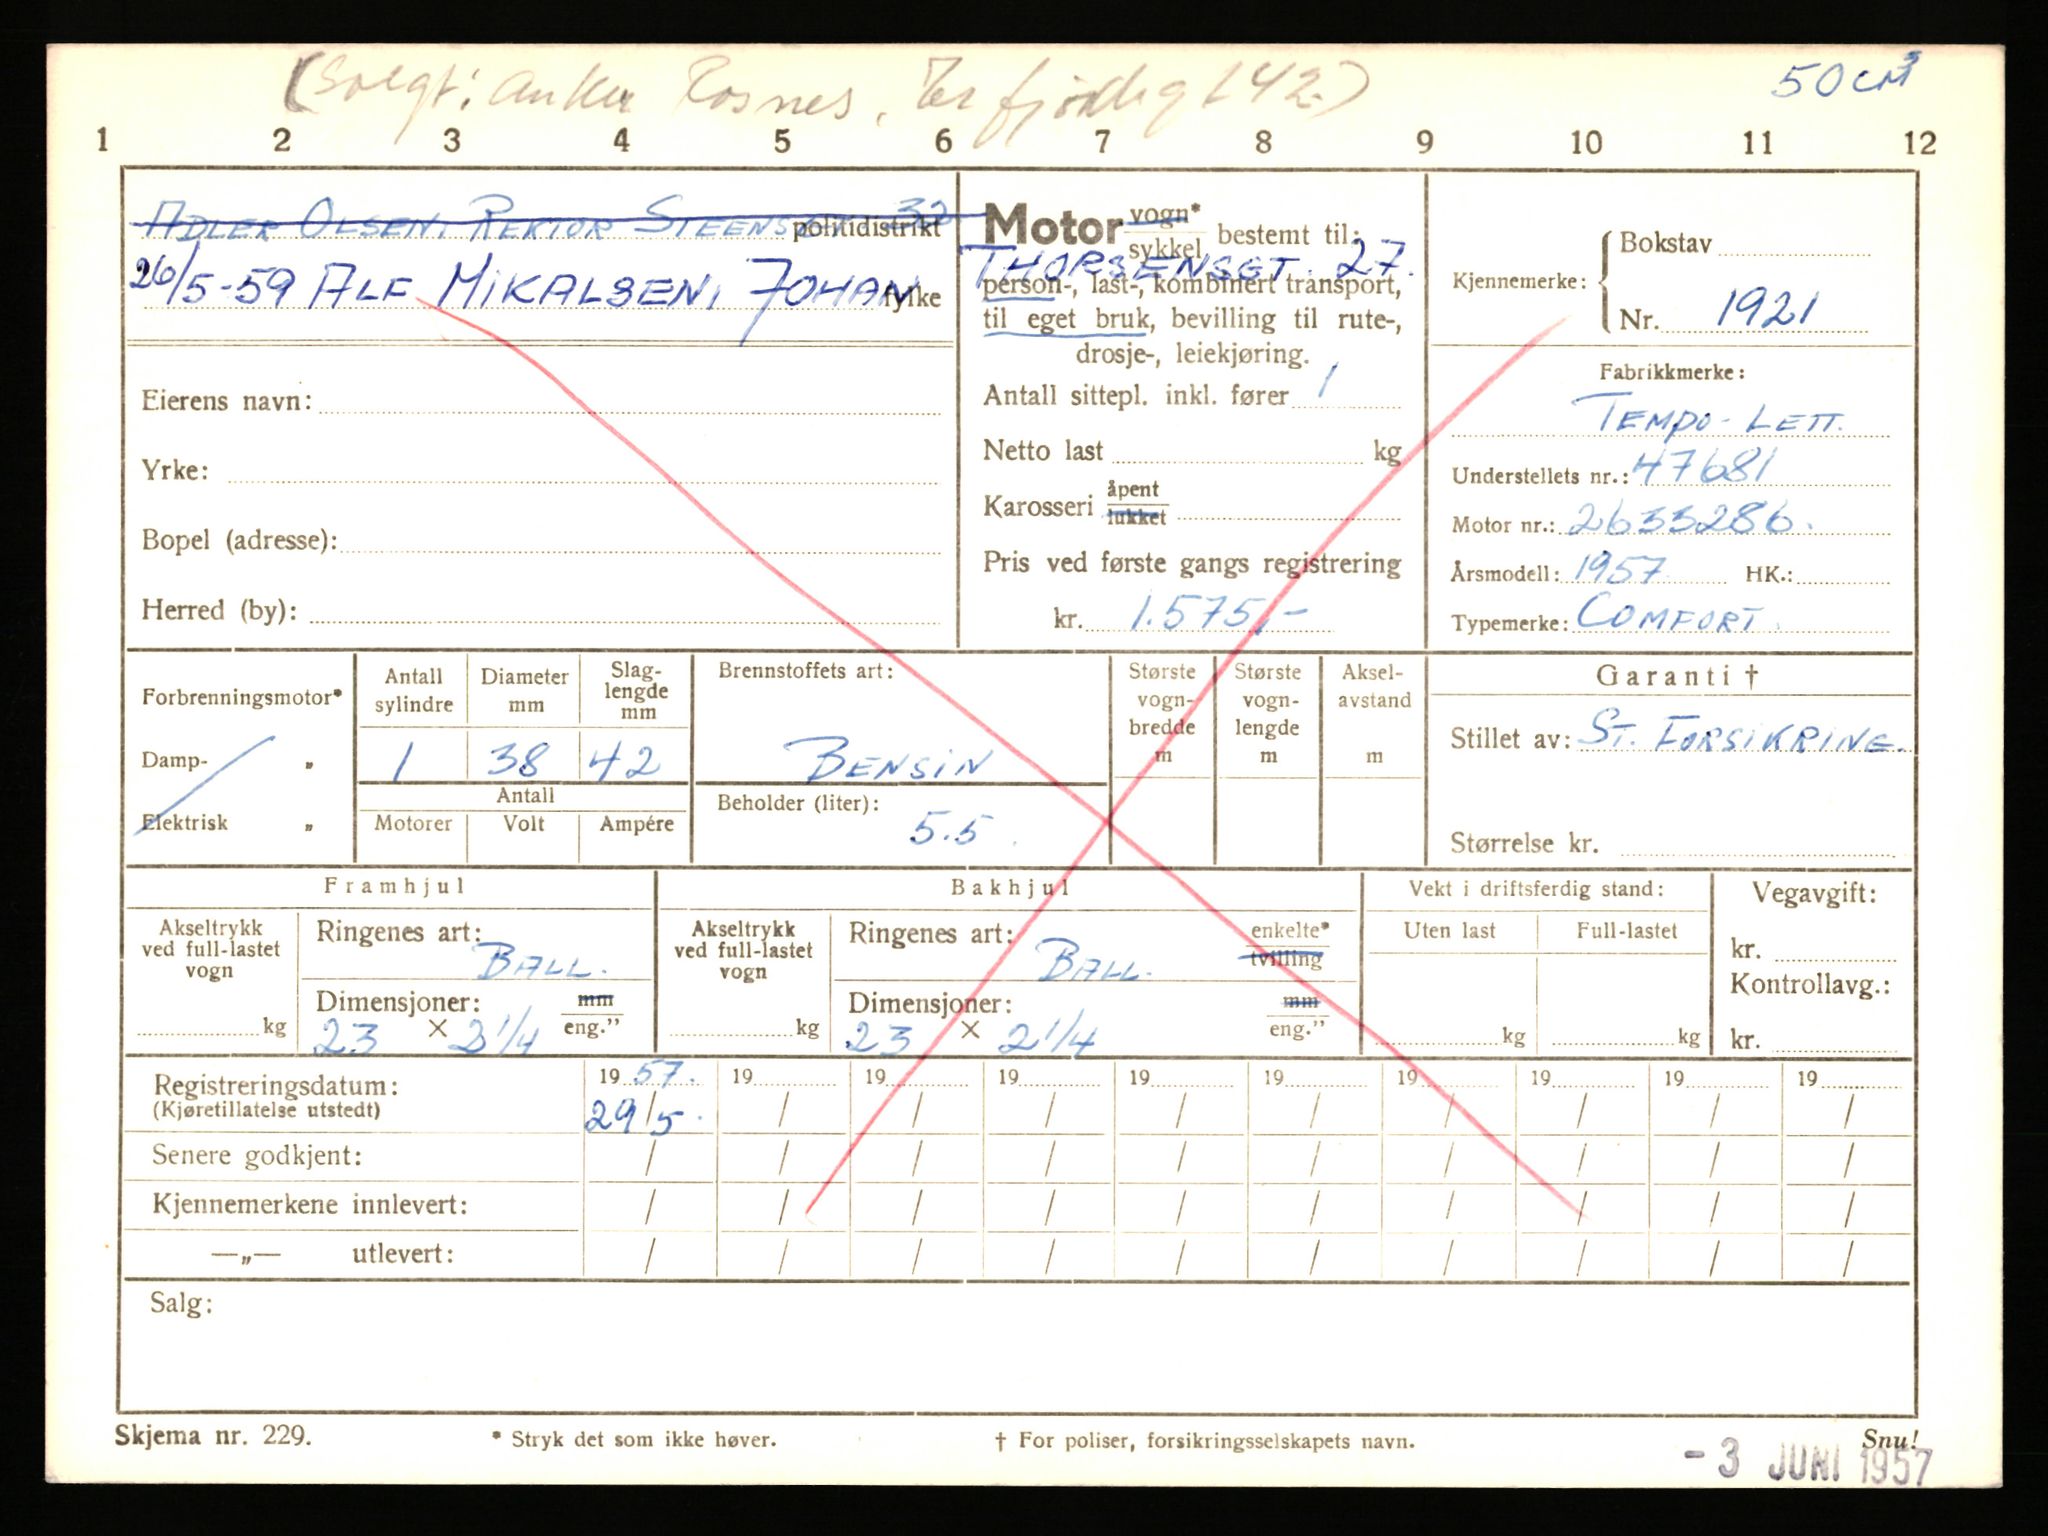 (Solgt: Anker Rosnes,
50 cm³
1 2 3 4 5 6 7 8 9 10 11 12
ADLER OLSEN, REKTOR STEENSGT 32 politidistrikt
26/5-59 ALF MIKALSEN, JOHAN THORSENSGT. 27. fylke
Eierens navn:
Yrke:
Bopel (adresse):
Herred (by):
Motor vogn* sykkel bestemt til:
person-, last-, kombinert transport,
til eget bruk, bevilling til rute-,
drosje-, leiekjøring.
Antall sittepl. inkl. fører 1
Netto last kg
Karosseri åpent lukket
Pris ved første gangs registrering
kr. 1.575,-
Kjennemerke: Bokstav
Nr. 1921
Fabrikkmerke:
TEMPO-LETT.
Understellets nr.: 47681
Motor nr.: 2633286.
Årsmodell: 1957 HK.:
Typemerke: COMFORT.
Forbrenningsmotor*
Damp- „
Elektrisk „
Antall sylindre
Diameter mm
Slaglengde mm
1 38 42
Antall
Motorer Volt Ampére
Brennstoffets art:
BENSIN
Beholder (liter):
5.5.
Største vognbredde m
Største vognlengde m
Akselavstand m
Garanti †
Stillet av: ST. FORSIKRING.
Størrelse kr.
Framhjul
Akseltrykk ved full-lastet vogn
kg
Ringenes art:
BALL.
Dimensjoner: mm
23 × 2 1/4 eng."
Bakhjul
Akseltrykk ved full-lastet vogn
kg
Ringenes art: enkelte* tvilling
BALL.
Dimensjoner: mm
23 × 2 1/4 eng."
Vekt i driftsferdig stand:
Uten last Full-lastet
kg kg
Vegavgift:
kr.
Kontrollavg.:
kr.
Registreringsdatum: 19 57. 19 19 19 19 19 19 19 19 19
(Kjøretillatelse utstedt) 29/5. / / / / / / / / /
Senere godkjent: / / / / / / / / / /
Kjennemerkene innlevert: / / / / / / / / / /
—„— utlevert: / / / / / / / / / /
Salg:
Skjema nr. 229. * Stryk det som ikke høver. † For poliser, forsikringsselskapets navn. Snu!
- 3 JUNI 1957